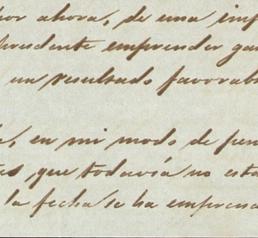 por ahora, de una imp
presidente emprender ga
un resultado favorab
en mi modo de pen
que todavía no esta
la fecha se ha emprend